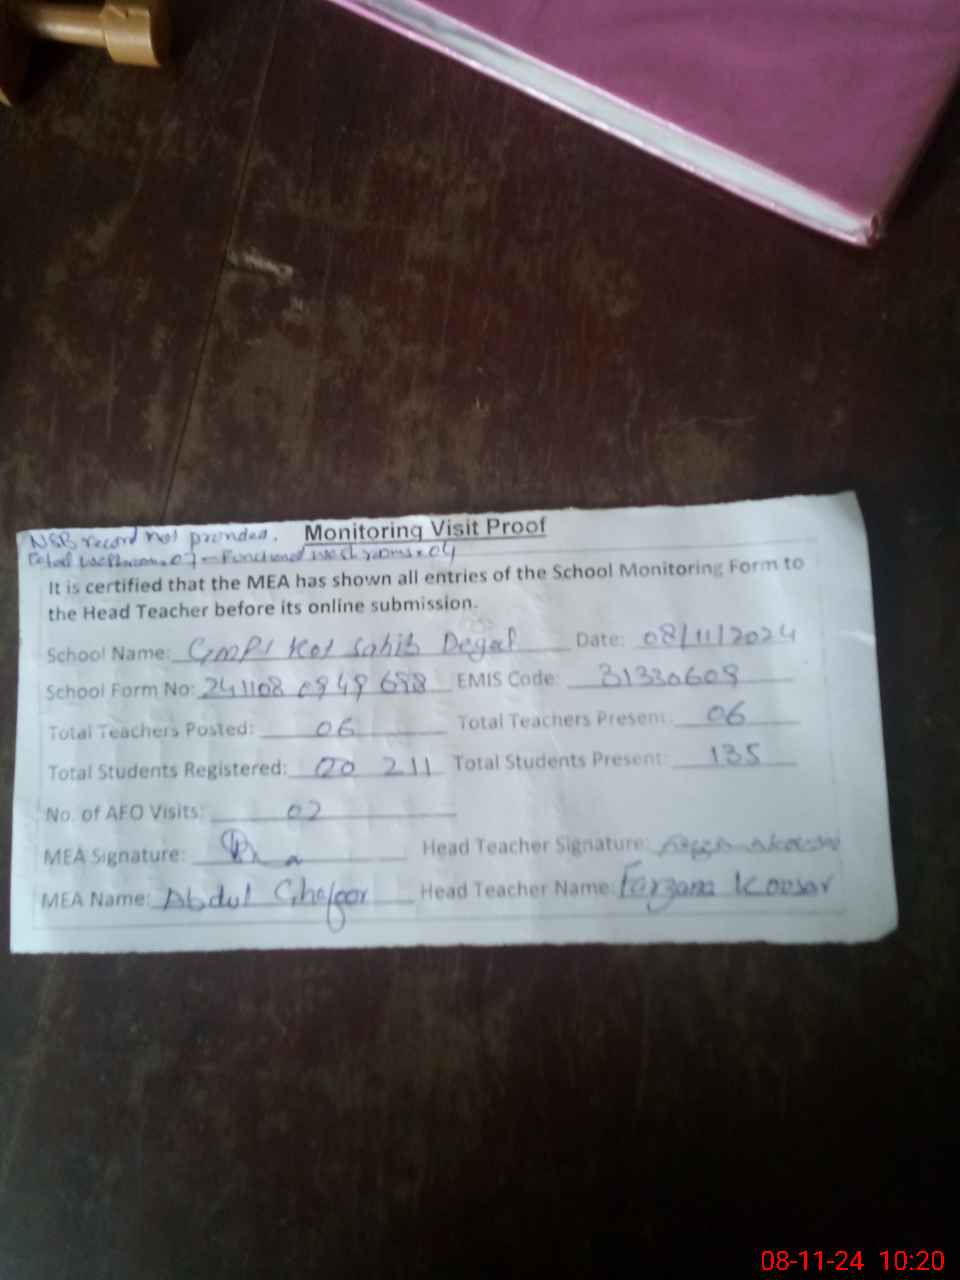 NSB record not provided. Monitoring Visit Proof
Total washroom = 07 - Functional washrooms = 04
It is certified that the MEA has shown all entries of the School Monitoring Form to
the Head Teacher before its online submission.
School Name: GMPS Kot Sahib Date: 08/11/2024
School Form No: 241108 0949 698 EMIS Code: 31330609
Total Teachers Posted: 06 Total Teachers Present: 06
Total Students Registered: 211 Total Students Present: 135
No. of AEO Visits: 02
MEA Signature: Head Teacher Signature:
MEA Name: Abdul Ghafoor Head Teacher Name: Farzana Kousar
08-11-24 10:20